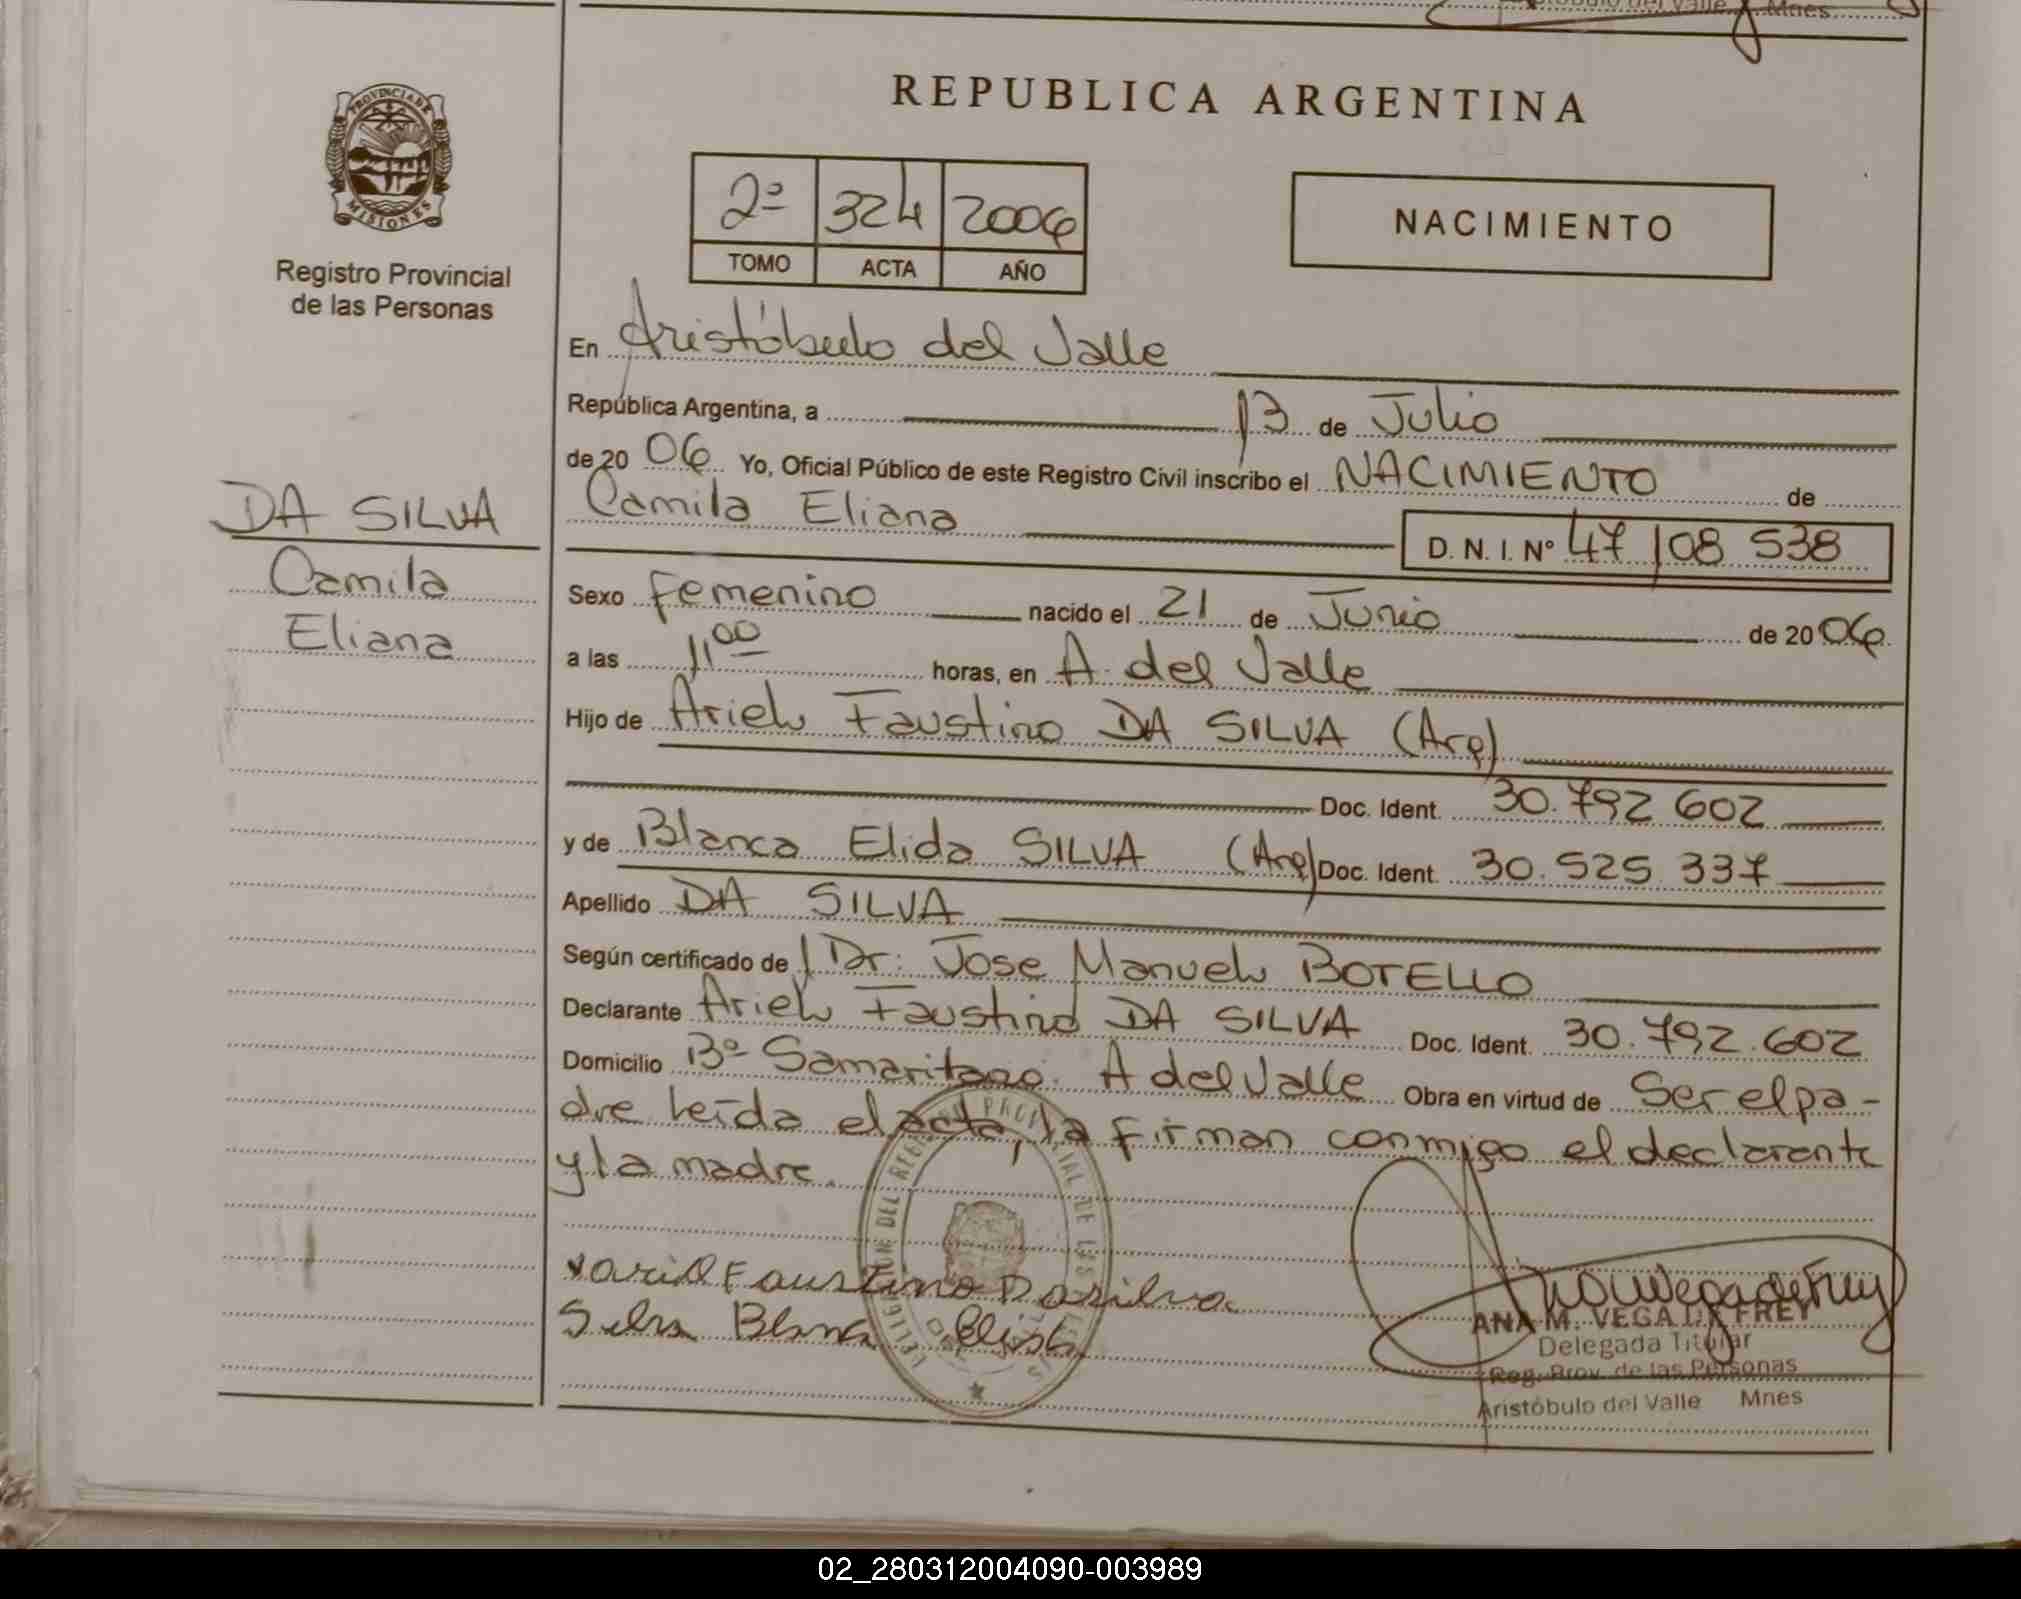 Aristóbulo del Valle Mnes
REPUBLICA ARGENTINA
PROVINCIA DE MISIONES
Registro Provincial
de las Personas
2º 324 2006
TOMO ACTA AÑO
NACIMIENTO
En Aristóbulo del Valle
República Argentina, a 13 de Julio
de 20 06 Yo, Oficial Público de este Registro Civil inscribo el NACIMIENTO de
Camila Eliana D. N. I. Nº 47 108 538
DA SILVA
Camila
Eliana
Sexo Femenino nacido el 21 de Junio de 20 06
a las 11 00 horas, en A. del Valle
Hijo de Ariel Faustino DA SILVA (Arg)
Doc. Ident. 30.792 602
y de Blanca Elida SILVA (Arg) Doc. Ident. 30.525 337
Apellido DA SILVA
Según certificado de Dr: Jose Manuel BOTELLO
Declarante Ariel Faustino DA SILVA Doc. Ident. 30.792.602
Domicilio Bº Samaritano. A del Valle Obra en virtud de Ser el pa-
dre leída el acta, la firman conmigo el declarante
y la madre.
Ariel Faustino Dasilva
Silva Blanca Elida
ANA M. VEGA DE FREY
Delegada Titular
Reg. Prov. de las Personas
Aristóbulo del Valle Mnes
02_280312004090-003989